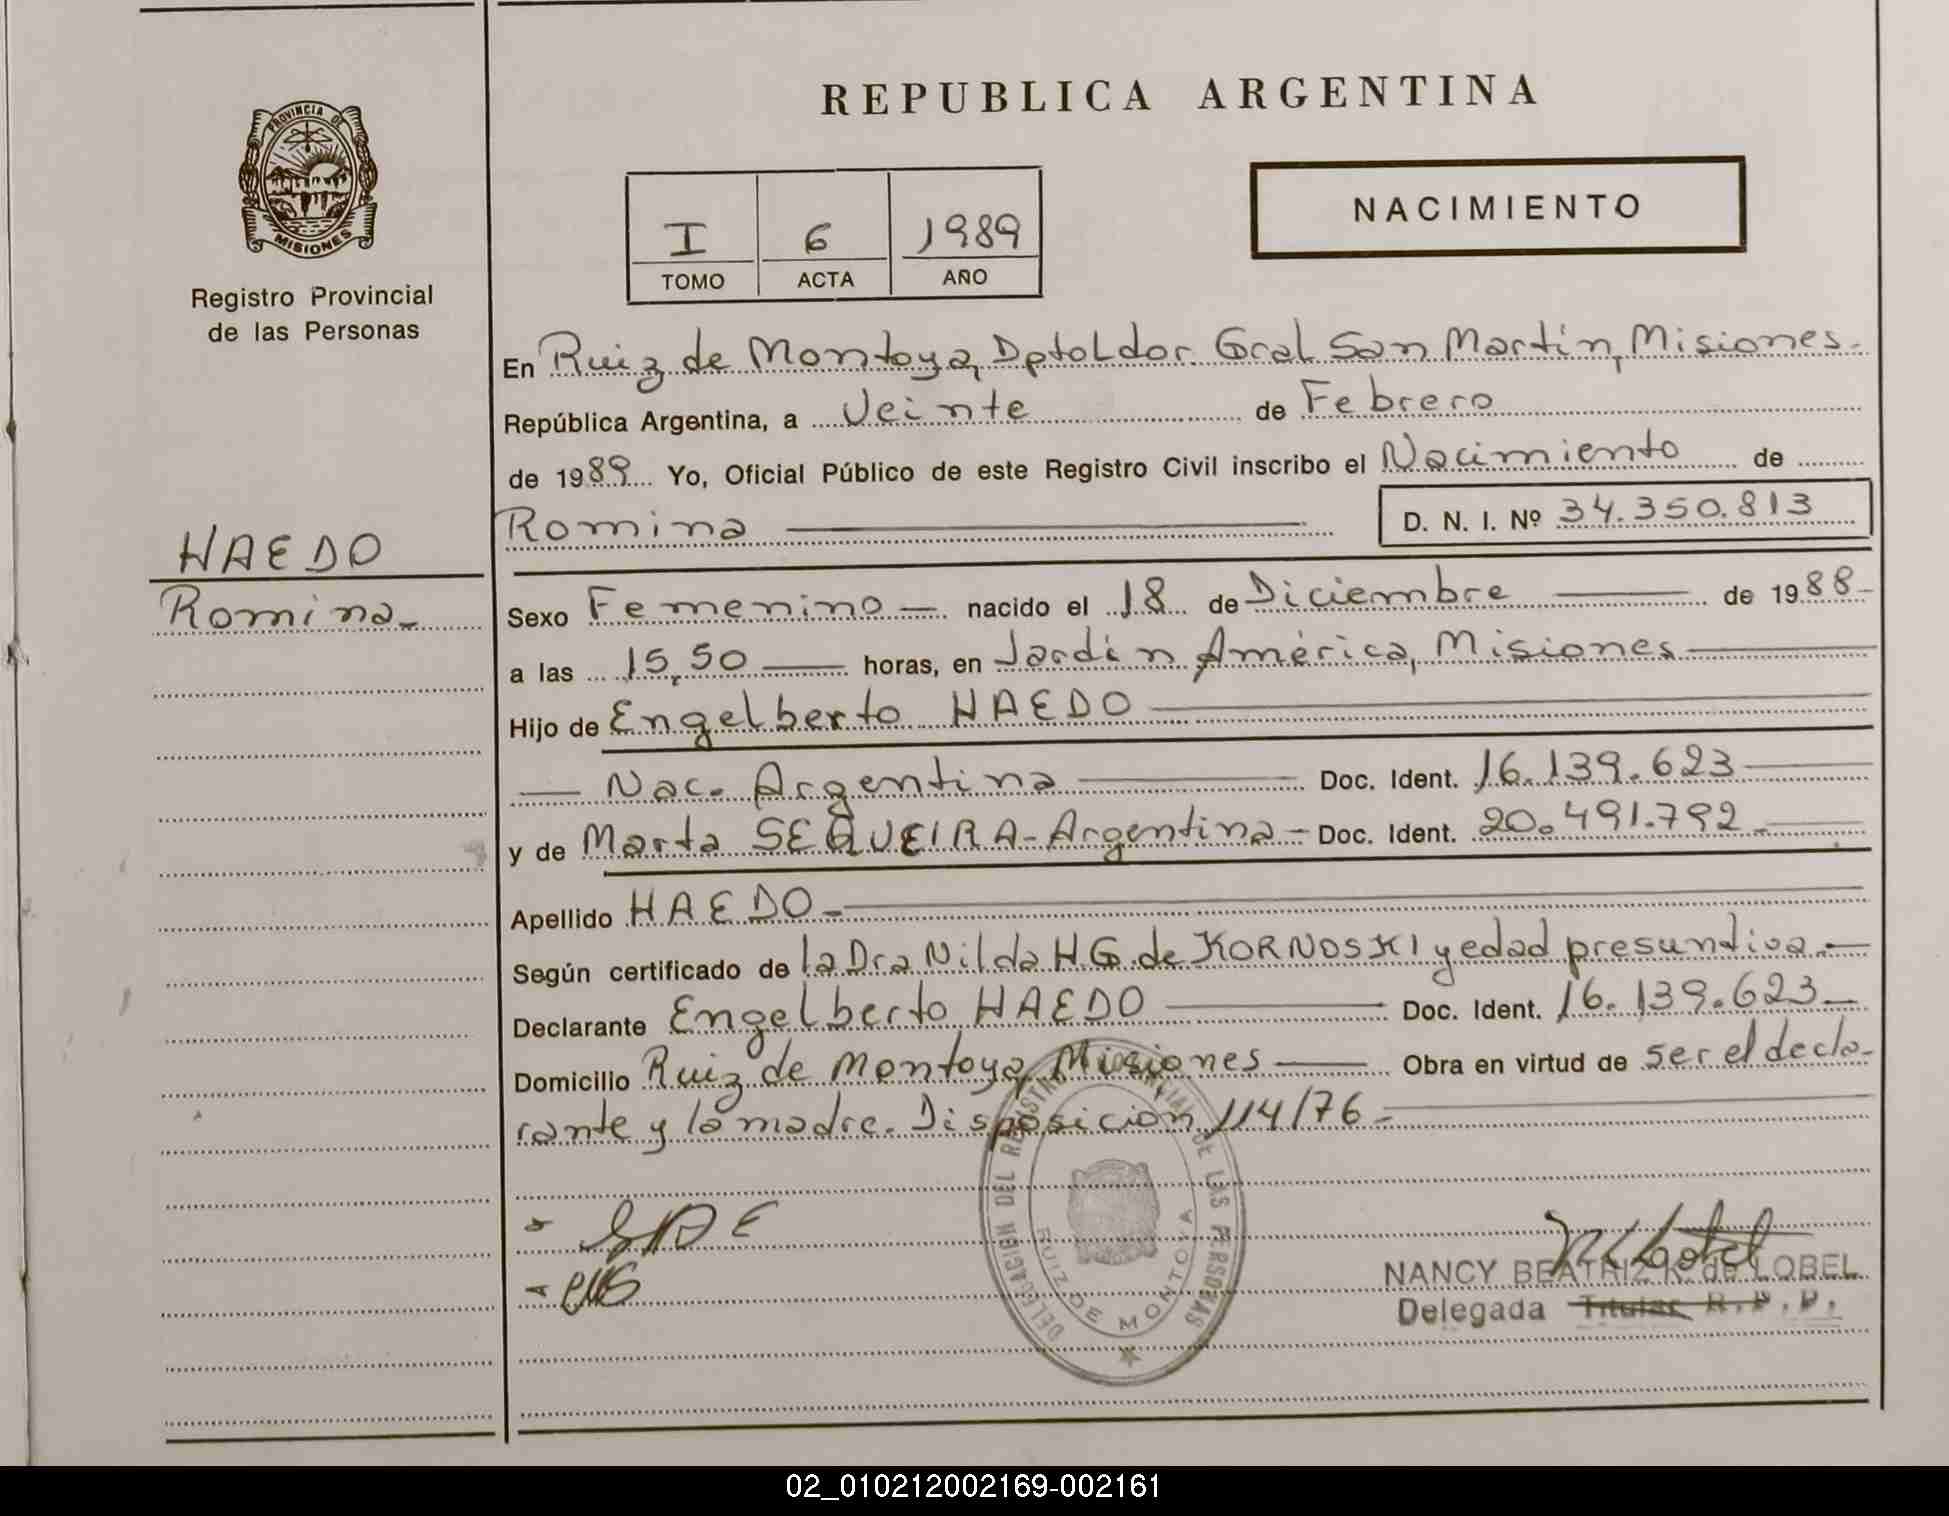 PROVINCIA DE
MISIONES
Registro Provincial
de las Personas
HAEDO
Romina.
REPUBLICA ARGENTINA
I 6 1989
TOMO ACTA AÑO
NACIMIENTO
En Ruiz de Montoya, Dpto Ldor. Gral San Martín, Misiones.
República Argentina, a Veinte de Febrero
de 1989 Yo, Oficial Público de este Registro Civil inscribo el Nacimiento de
Romina D. N. I. Nº 34.350.813
Sexo Femenino — nacido el 18 de Diciembre — de 1988-
a las 15,50 — horas, en Jardín América, Misiones —
Hijo de Engelberto HAEDO —
— Nac. Argentina — Doc. Ident. 16.139.623 —
y de Marta SEQUEIRA - Argentina - Doc. Ident. 20.491.792. —
Apellido HAEDO. —
Según certificado de la Dra Nilda H.G. de KORNOSKI y edad presuntiva. —
Declarante Engelberto HAEDO — Doc. Ident. 16.139.623 —
Domicilio Ruiz de Montoya, Misiones — Obra en virtud de ser el decla-
rante y la madre. Disposición 114/76 -
DELEGACION DEL REGISTRO PROVINCIAL DE LAS PERSONAS
RUIZ DE MONTOYA
NANCY BEATRIZ K. de LOBEL
Delegada Titular R. P. P.
02_010212002169-002161